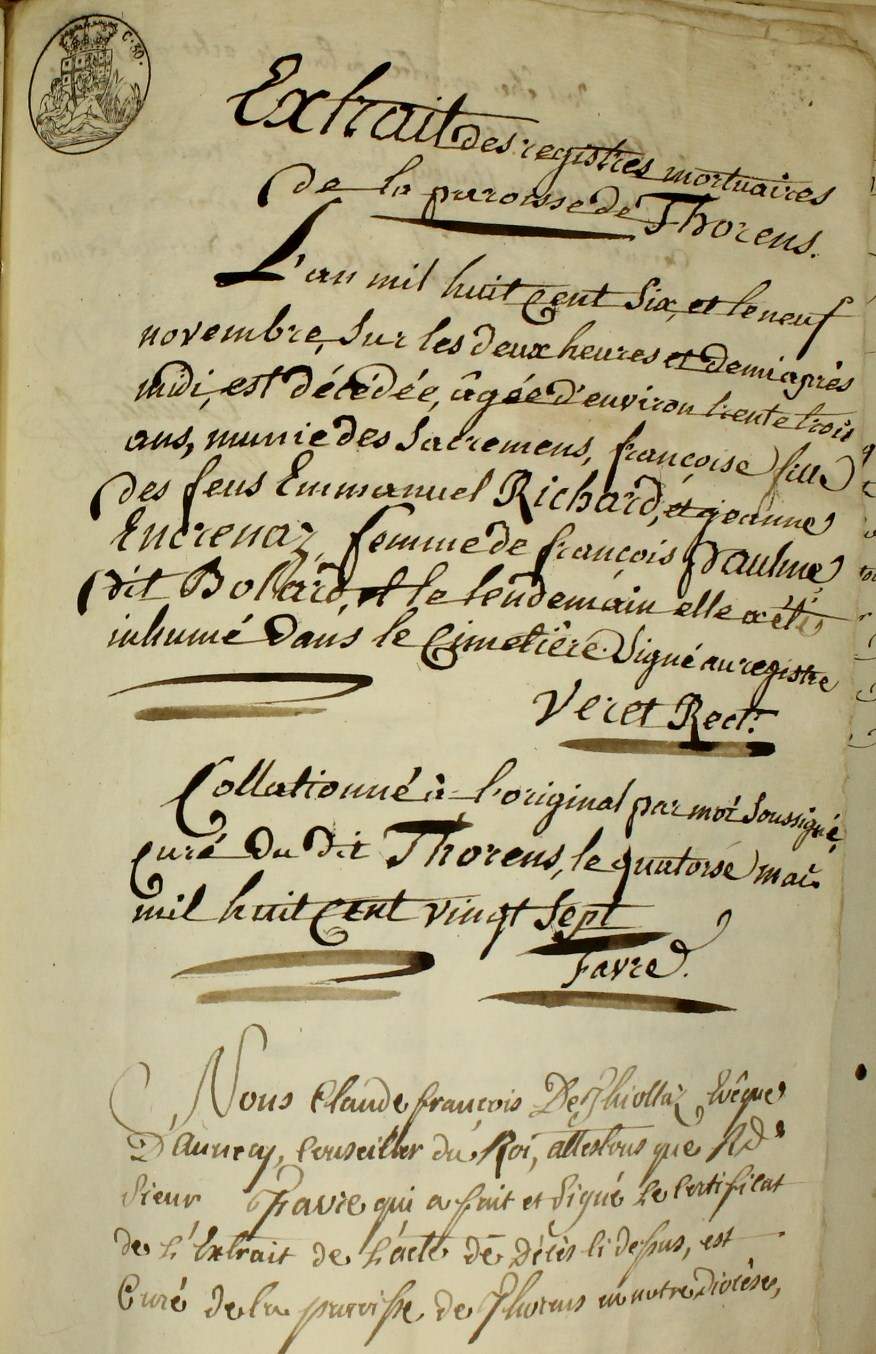 C. 30.
Extrait des registres mortuaires
de la paroisse de Thorens.
L'an mil huit cent six, et le neuf
novembre, sur les deux heures et demi après
midi, est décédée, âgée d'environ trente trois
ans, munie des sacremens, françoise fille
des feus Emmanuel Richard, et jeanne
Encrenaz, femme de françois Daulme
dit Bollard, et le lendemain elle a été
inhumé dans le cimetière. Signé au registre
Veret Rect.r
Collationné à l'original par moi soussigné,
curé du dit Thorens, le quatorse mai
mil huit cent vingt sept
favre.
Nous Claude françois De Thiollaz Evêque
D'Annecy, Conseiller du Roi, attestons que Rd
sieur Favre qui a fait et signé le certificat
de l'Extrait de l'acte de Décès ci dessus, est
Curé de la paroisse de Thorens en notre Diocèse,